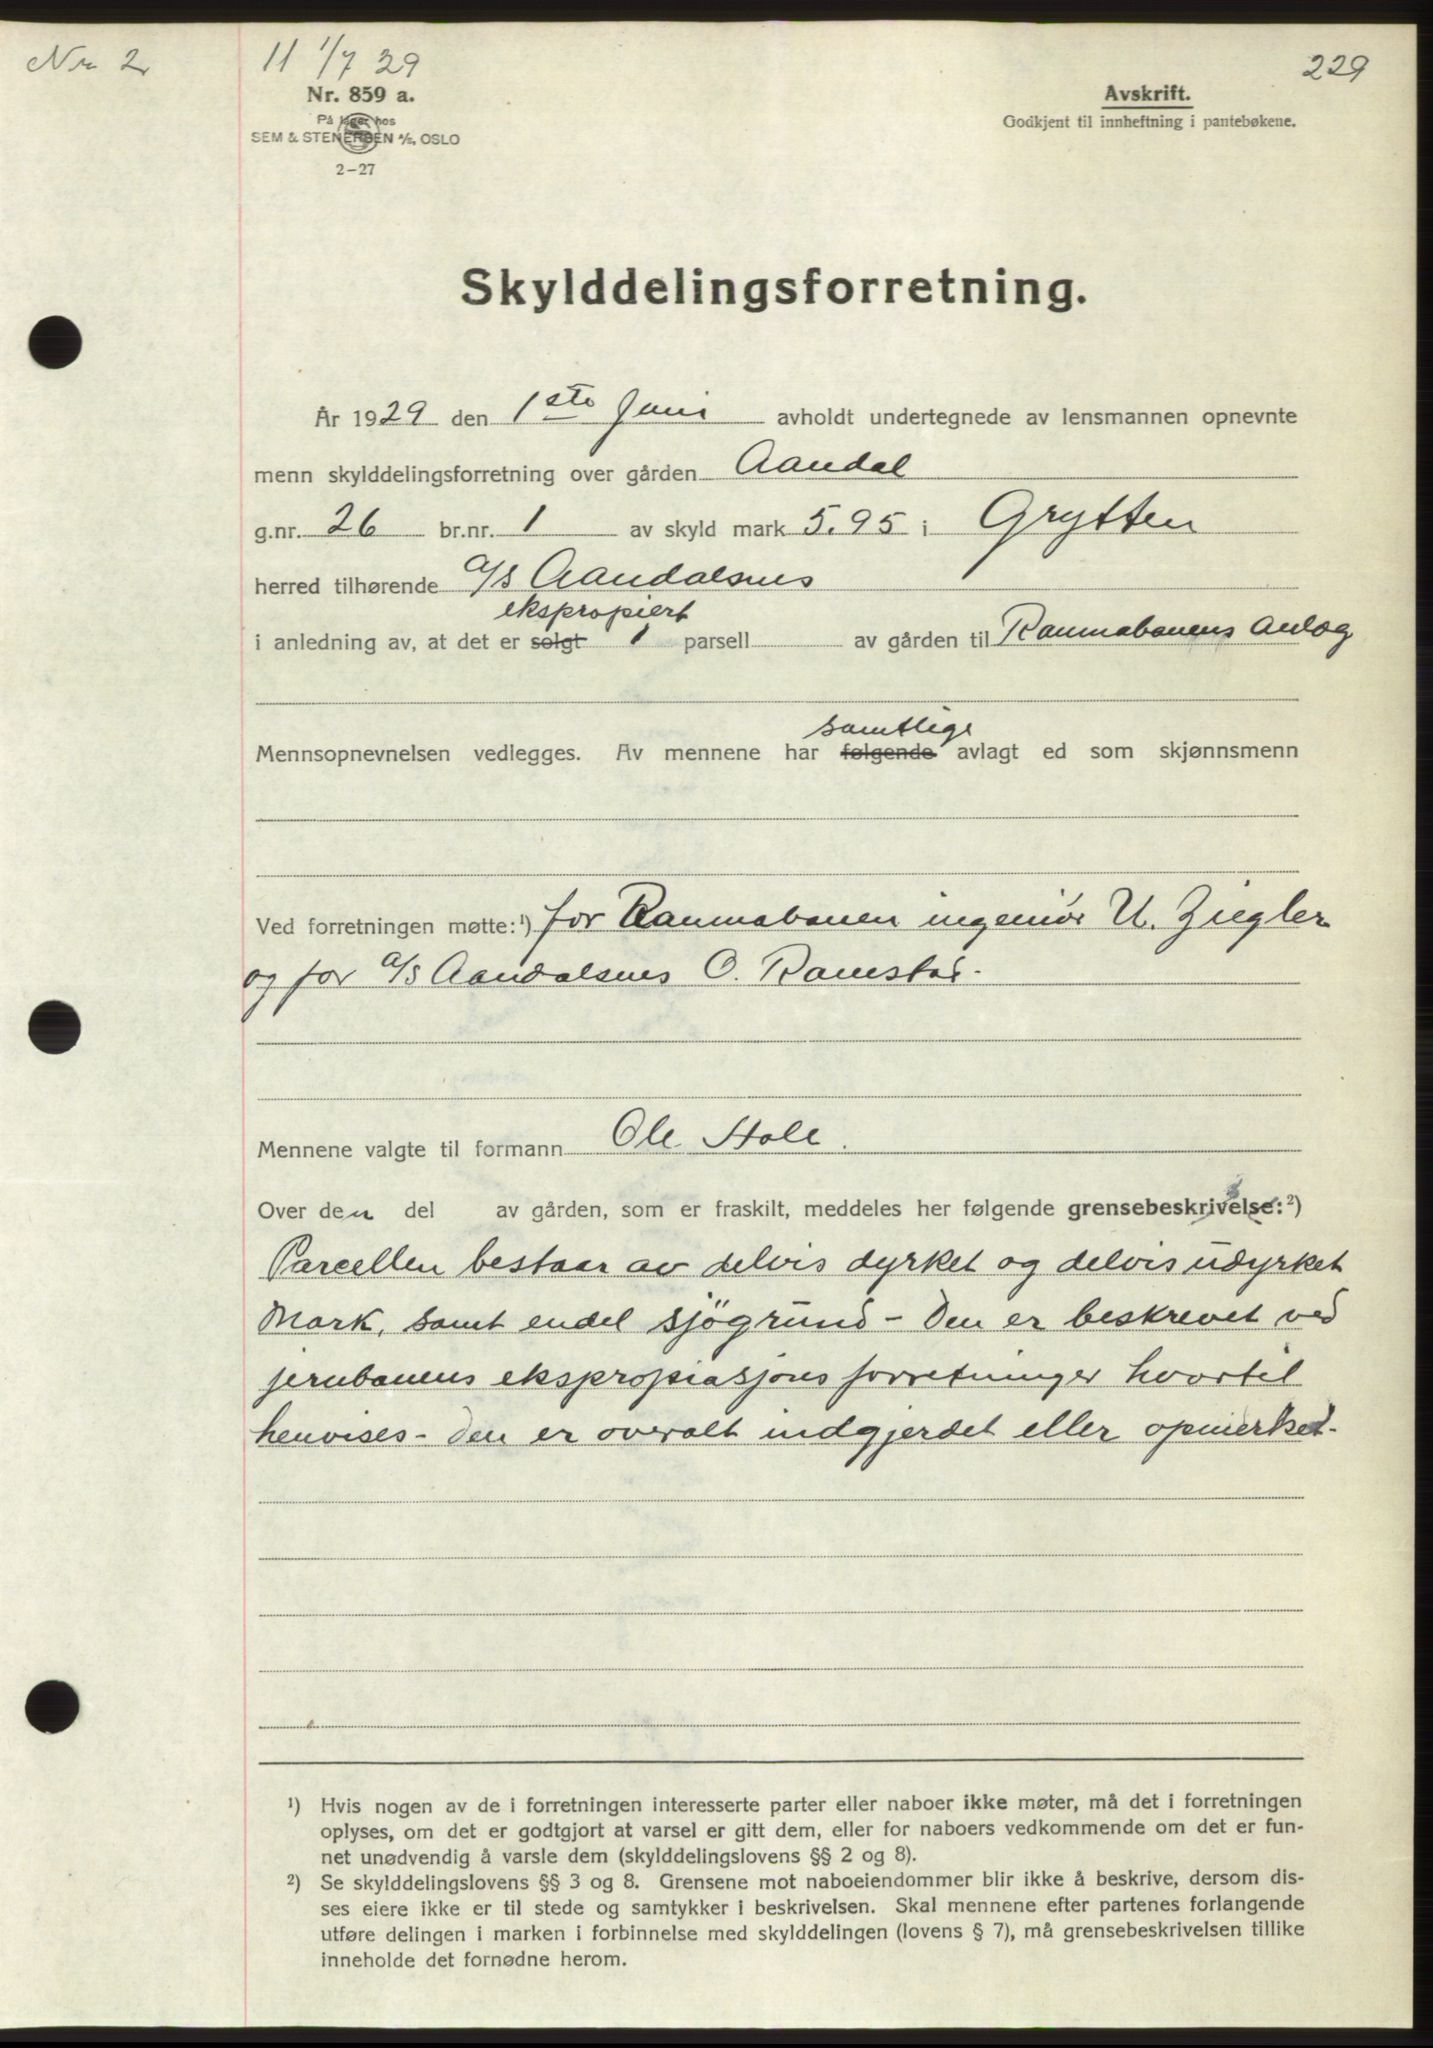 Nr 2
11 1/7 29
229
Nr. 859 a.
På lager hos
SEM & STENERSEN A/S, OSLO
2-27
Avskrift.
Godkjent til innheftning i pantebøkene.
Skylddelingsforretning.
År 1929 den 1ste Juni avholdt undertegnede av lensmannen opnevnte
menn skylddelingsforretning over gården Aandal
g.nr. 26 br.nr. 1 av skyld mark 5.95 i Grytten
herred tilhørende A/S Aandalsnes
ekspropiert
i anledning av, at det er solgt 1 parsell av gården til Raumabanens Anlæg
samtlige
Mennsopnevnelsen vedlegges. Av mennene har følgende avlagt ed som skjønnsmenn
Ved forretningen møtte:¹) for Raumabanen ingeniør U. Ziegler
og for A/S Aandalsnes O. Ramstad.
Mennene valgte til formann Ole Stole.
Over den del av gården, som er fraskilt, meddeles her følgende grensebeskrivelse:²)
Parcellen bestaar av delvis dyrket og delvis udyrket
Mark, samt endel sjøgrund - Den er beskrevet ved
jernbanens ekspropiasjons forretninger hvortil
henvises - Den er overalt indgjerdet eller opmerket.
¹) Hvis nogen av de i forretningen interesserte parter eller naboer ikke møter, må det i forretningen
oplyses, om det er godtgjort at varsel er gitt dem, eller for naboers vedkommende om det er fun-
net unødvendig å varsle dem (skylddelingslovens §§ 2 og 8).
²) Se skylddelingslovens §§ 3 og 8. Grensene mot naboeiendommer blir ikke å beskrive, dersom dis-
ses eiere ikke er til stede og samtykker i beskrivelsen. Skal mennene efter partenes forlangende
utføre delingen i marken i forbinnelse med skylddelingen (lovens § 7), må grensebeskrivelsen tillike
inneholde det fornødne herom.